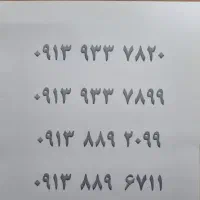 ۰۹۱۳ ۹۳۳ ۷۸۲۰
۰۹۱۳ ۹۳۳ ۷۸۹۹
۰۹۱۳ ۸۸۹ ۲۰۹۹
۰۹۱۳ ۸۸۹ ۶۷۱۱